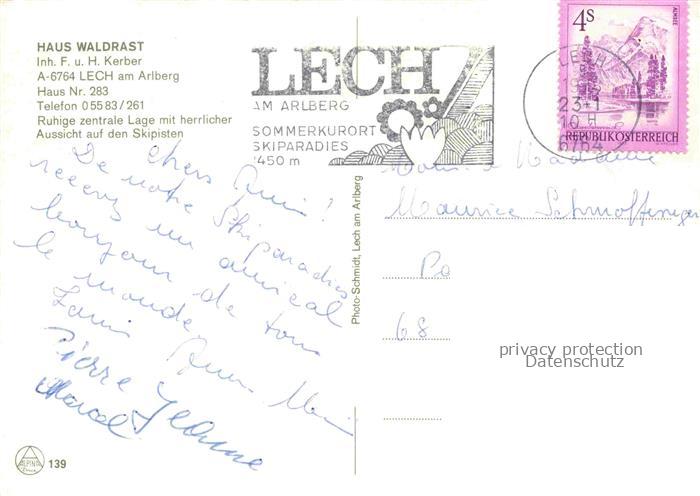 HAUS WALDRAST
Inh. F. u. H. Kerber
A-6764 LECH am Arlberg
Haus Nr. 283
Telefon 0 55 83 / 261
Ruhige zentrale Lage mit herrlicher
Aussicht auf den Skipisten
LECH
AM ARLBERG
SOMMERKURORT
SKIPARADIES
1450 m
4S
ALMSEE
REPUBLIK ÖSTERREICH
LECH
23-1
10 H
6764
Chers Amis!
De notre Skiparadies
recevez un amical
bonjour de tous
le monde.
Pierre Jeanne
Marcel
Madame
Maurice
68
Photo-Schmidt, Lech am Arlberg
privacy protection
Datenschutz
ALPINA
139